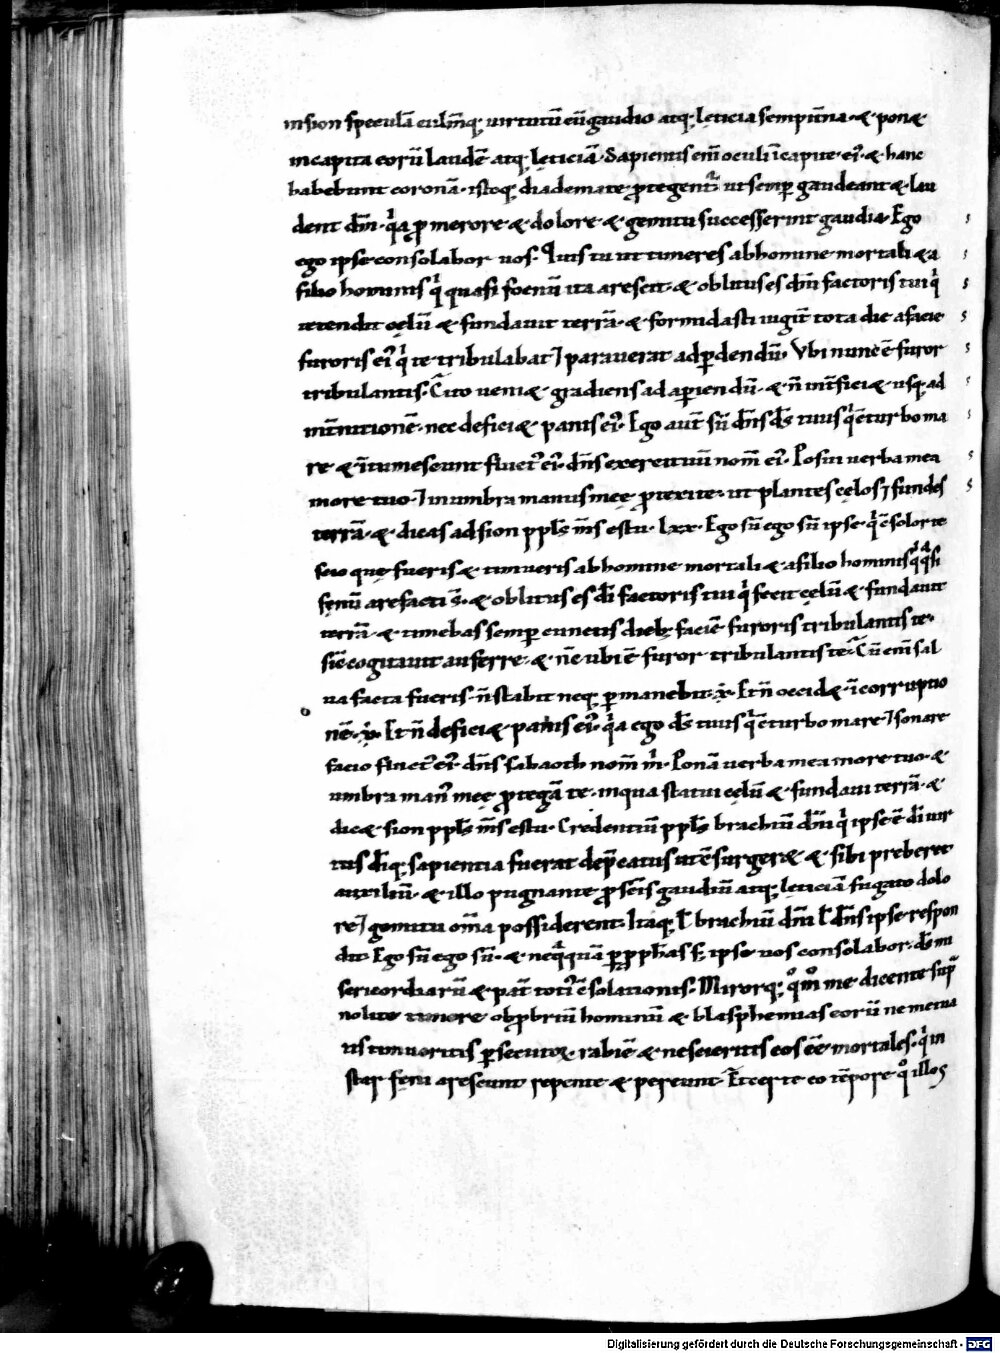 insion speculā culm̄q; uirtutū cū gaudio atq; lęticia sempit̄na. & ponā
in capita eorū laudē atq; lęticiā. Sapientis em̄ oculi ī capite ei᷒. & hanc
habebunt coronā. istoq; diademate ꝓtegent᷑. ut semꝑ gaudeant & lau
dent dn̄m. qͥa ꝓ merore & dolore & gemitu successerint gaudia. Ego
ego ipse consolabor uos. Quis tu ut timeres ab homine mortali & a
filio hominis qͥ quasi foenū ita arescit. & oblitus es dn̄i factoris tui qͥ
tetendit cęlū & fundauit terrā. & formidasti iugit̄ tota die a facie
furoris ei᷒ qͥ te tribulabat ⁊ parauerat ad ꝑdendū. Vbi nunc ē furor
tribulantis. Cito ueni& gradiens ad aꝑiendū. & n̄ int̄fici& usq; ad
int̄nitionē. nec defici& panis ei᷒. Ego aut̄ sū dn̄s ds̄ tuus qͥ ɔturbo ma
re & ītumescunt fluct᷒ ei᷒. dn̄s exercituū nom̄ ei᷒. Posui uerba mea
in ore tuo. ⁊ in umbra manus meę ꝓtexi te. ut plantes cęlos ⁊ fundes
terrā. & dicas ad sion ppl̄s m̄s es tu. lxx. Ego sū ego sū ipse qͥ ɔsolor te
scio quę fueris & timueris ab homine mortali & a filio hominis qͥ qͣsi
fęnū arefacti s̄. & oblitus es dī factoris tui qͥ fecit cęlū & fundauit
terrā. & timebas semper cunctis dieb; faciē furoris tribulantis te.
sic̄ cogitauit auferre. & nc̄ ubi ē furor tribulantis te. Cū em̄ sal
ua facta fueris. n̄ stabit neq; ꝑmanebit. Et n̄ occid& ī corruptio
nē. Et n̄ defici& panis ei᷒. qͥa ego ds̄ tuus qͥ ɔturbo mare ⁊ sonare
facio fluct᷒ ei᷒. dn̄s sabaoth nom̄ m̄. Ponā uerba mea in ore tuo. &
umbra man᷒ meę ꝓtegā te. in qua statui cęlū & fundaui terrā. &
dic& sion ppl̄s m̄s es tu. Credentiū ppl̄s brachiū dn̄i qͥ ipse ē dī uir
tus dīq; sapientia fuerat dep̄catus ut ɔsurger& & sibi preberet
auxiliū. & illo pugnante ꝓ sc̄is gaudiū atq; lęticiā fugato dolo
re ⁊ gemitu om̄a possiderent. Itaq; ł brachiū dn̄i ł dn̄s ipse respon
dit. Ego sū ego sū. & neqͣquā ꝑ ꝓphetas s; ipse uos consolabor. ds̄ mi
sericordiarū & pat̄ toti᷒ ɔsolationis. Mirorq; qͦm̄ me dicente sup̄
nolite timere obꝓbriū hominū & blasphemias eorū ne metua
tis timueritis ꝑsecutoꝝ rabiē & nescieritis eos eē mortales. qͥ in
star fęni arescunt repente & pereunt. Et certe eo tēpore qͦ illos